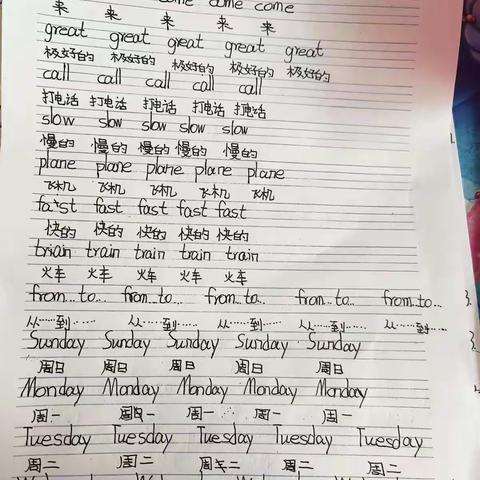 come come come
来 来 来 来 来
great great great great great
极好的 极好的 极好的 极好的 极好的
call call call call call
打电话 打电话 打电话 打电话 打电话
slow slow slow slow slow
慢的 慢的 慢的 慢的 慢的
plane plane plane plane plane
飞机 飞机 飞机 飞机 飞机
fast fast fast fast fast
快的 快的 快的 快的 快的
train train train train train
火车 火车 火车 火车 火车
from...to... from...to... from...to... from...to... from...to...
从……到…… 从……到…… 从……到…… 从……到…… 从……到……
Sunday Sunday Sunday Sunday Sunday
周日 周日 周日 周日 周日
Monday Monday Monday Monday Monday
周一 周一 周一 周一 周一
Tuesday Tuesday Tuesday Tuesday Tuesday
周二 周二 周二 周二 周二